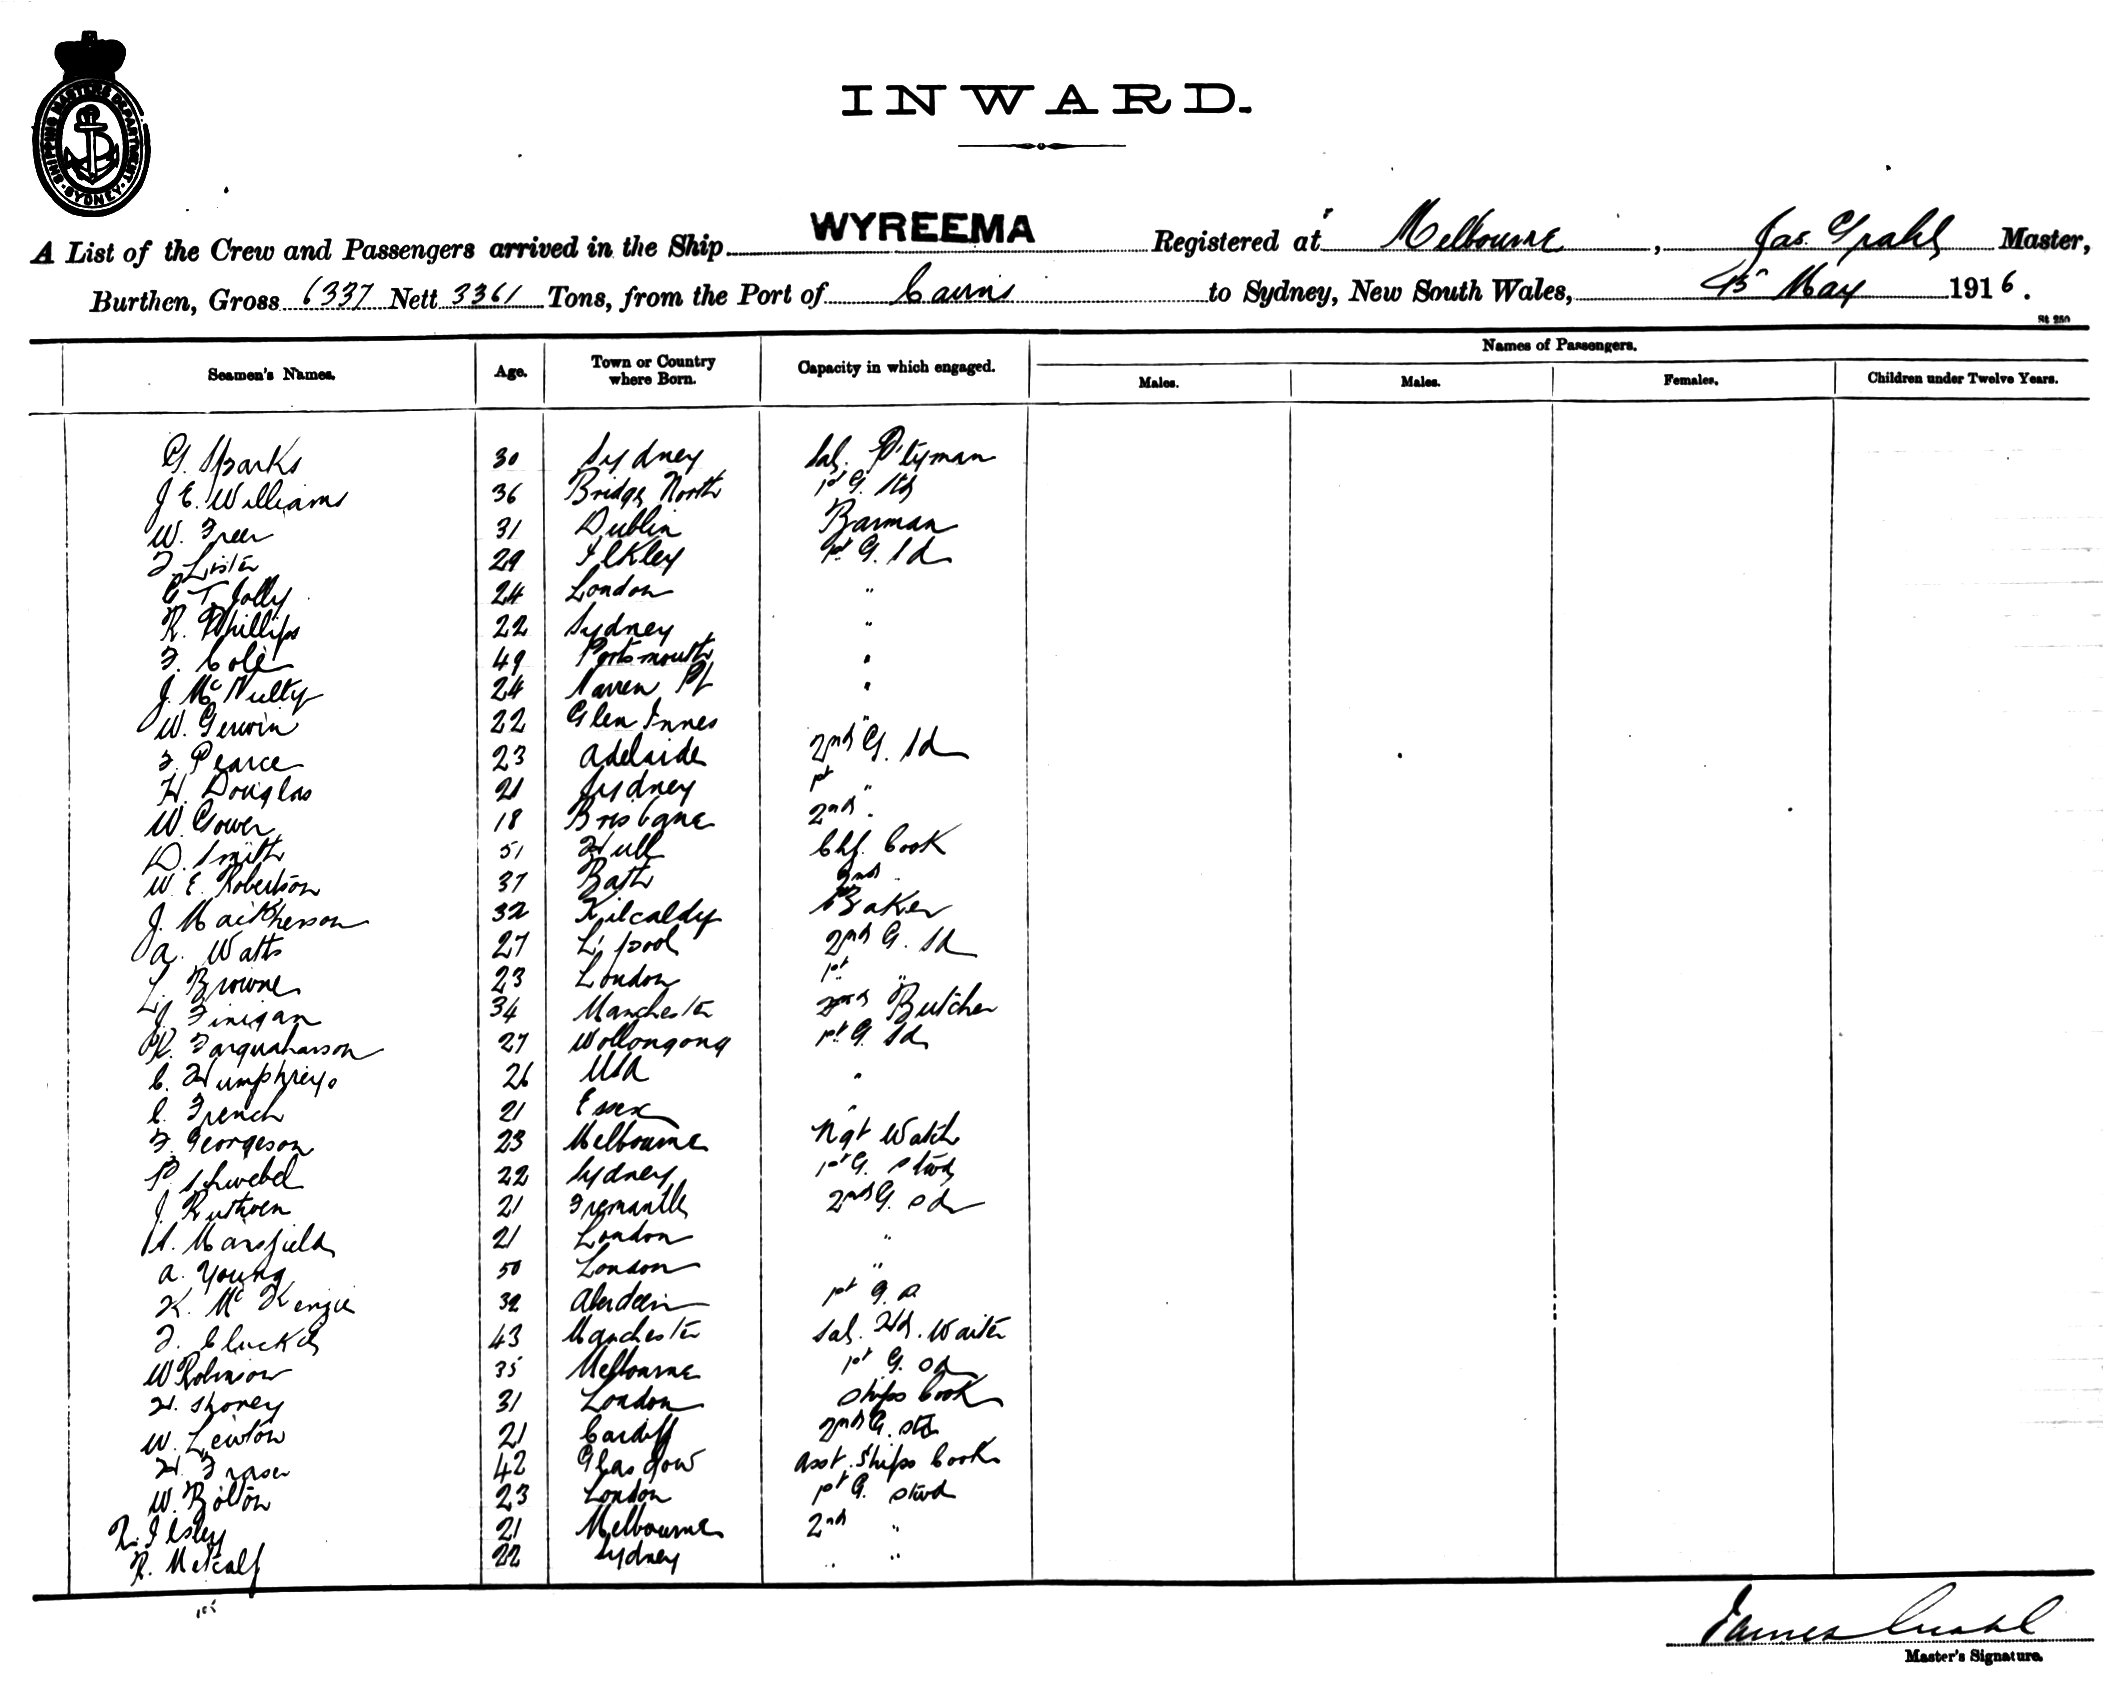 SHIPPING MASTERS DEPARTMENT. SYDNEY
INWARD.
A List of the Crew and Passengers arrived in the Ship WYREEMA Registered at Melbourne, Jas. Grahl Master,
Burthen, Gross 6337 Nett 3361 Tons, from the Port of Cairns to Sydney, New South Wales, May 1916.
St 250
Seamen's Names. Age. Town or Country where Born. Capacity in which engaged. Names of Passengers.
Males. Males. Females. Children under Twelve Years.
G. Sparks 30 Sydney Sal. P'tyman
J E. Williams 36 Bridge North 1st G. Std
W. Freer 31 Dublin Barman
F. Lister 29 Ilkley 1st G. Sd
C T. Jolly 24 London "
R. Phillips 22 Sydney "
F. Cole 49 Portsmouth "
J. Mc Nulty 24 Warren Pt "
W. Gerwin 22 Glen Innes "
F. Pearce 23 Adelaide 2nd G. Sd
H. Douglas 21 Sydney 1st "
W. Gower 18 Brisbane 2nd "
D. Smith 51 Hull Chf. Cook
W. E. Robertson 37 Bath 2nd "
J. MacPherson 32 Kilcaldy Baker
A. Watts 27 L'pool 2nd G. Sd
L. Browne 23 London 1st "
J. Finigan 34 Manchester 2nd Butcher
R. Farquaharson 27 Wollongong 1st G. Sd
C. Humphreys 26 USA "
C. French 21 Essex "
F. Georgeson 23 Melbourne Ngt Watch
P. Schwebel 22 Sydney 1st G. Stwd
J. Ruthven 21 Fremantle 2nd G. Sd
A. Mansfield 21 London "
A. Young 50 London "
K. Mc Kenzie 32 Aberdeen 1st G. S
F. 43 Manchester Sal. Hd. Waiter
W Robinson 35 Melbourne 1st G. Sd
H. Shorey 31 London Ships Cook
W. Lewton 21 Cardiff 2nd G. Std
H. Fraser 42 Glasgow Asst. Ships Cook
W. Bolton 23 London 1st G. Stwd
R. Ilsley 21 Melbourne 2nd "
R. Metcalf 22 Sydney " "
James Grahl
Master's Signature.